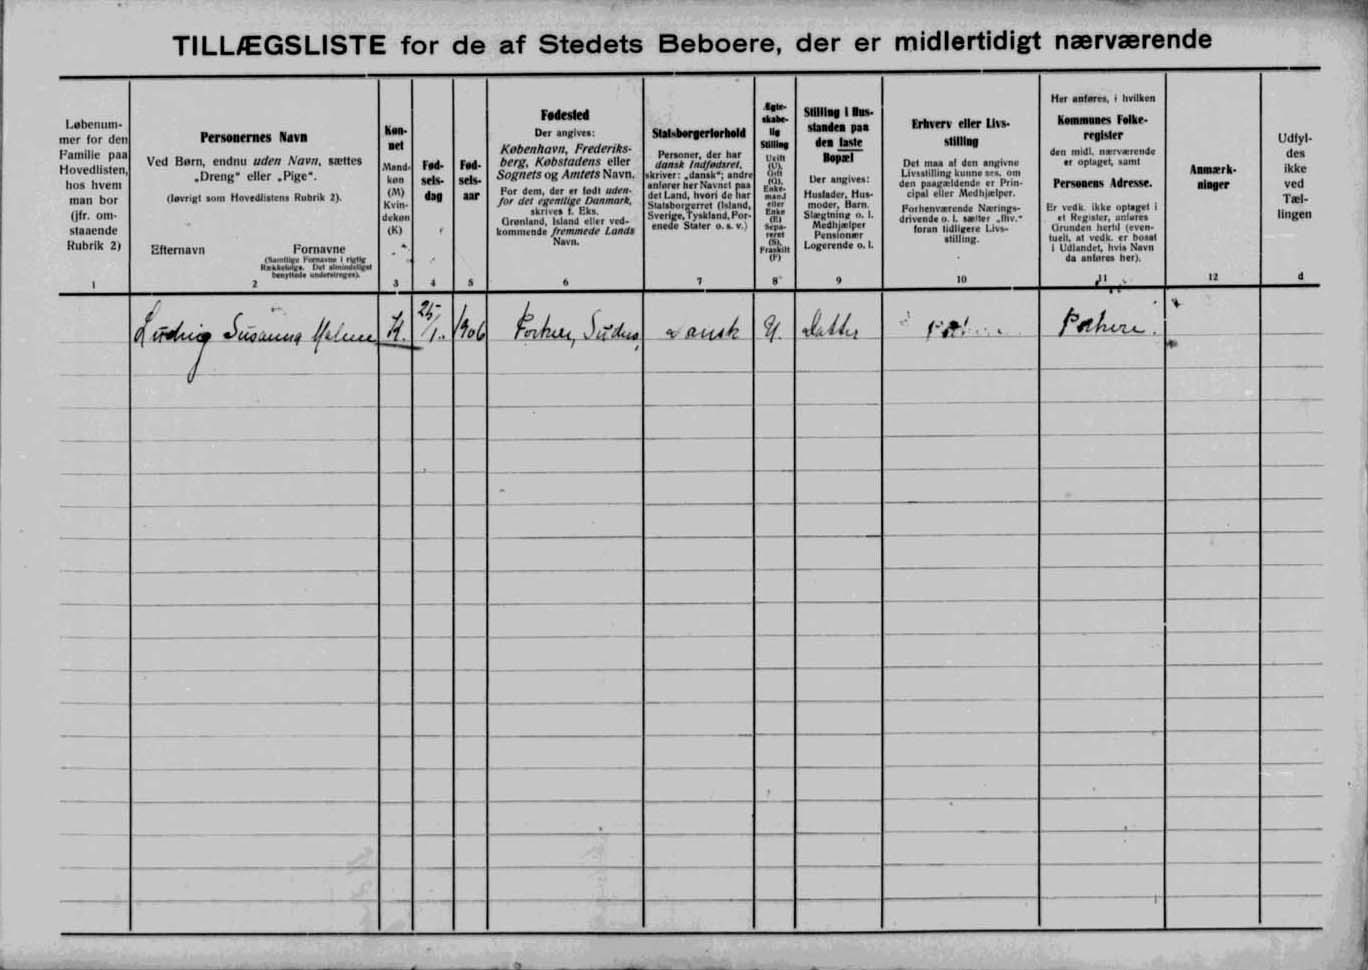 TILLÆGSLISTE for de af Stedets Beboere, der er midlertidigt nærværende
Løbenum-
mer for den
Familie paa
Hovedlisten,
hos hvem
man bor
(jfr. om-
staaende
Rubrik 2)
1
Personernes Navn
Ved Børn, endnu uden Navn, sættes
„Dreng“ eller „Pige“.
(Iøvrigt som Hovedlistens Rubrik 2).
Efternavn Fornavne
(Samtlige Fornavne i rigtig
Rækkefølge. Det almindeligst
benyttede understreges).
2
Køn-
net
Mand-
køn
(M)
Kvin-
dekøn
(K)
3
Fød-
sels-
dag
4
Fød-
sels-
aar
5
Fødested
Der angives:
København, Frederiks-
berg, Købstadens eller
Sognets og Amtets Navn.
For dem, der er født uden-
for det egentlige Danmark,
skrives f. Eks.
Grønland, Island eller ved-
kommende fremmede Lands
Navn.
6
Statsborgerforhold
Personer, der har
dansk Indfødsret,
skriver: „dansk“; andre
anfører her Navnet paa
det Land, hvori de har
Statsborgerret (Island,
Sverige, Tyskland, For-
enede Stater o. s. v.)
7
Ægte-
skabe-
lig
Stilling
Ugift
(U),
Gift
(G),
Enke-
mand
eller
Enke
(E)
Sepa-
reret
(S),
Fraskilt
(F)
8
Stilling i Hus-
standen paa
den faste
Bopæl
Der angives:
Husfader, Hus-
moder, Barn,
Slægtning o. l.
Medhjælper
Pensionær
Logerende o. l.
9
Erhverv eller Livs-
stilling
Det maa af den angivne
Livsstilling kunne ses, om
den paagældende er Prin-
cipal eller Medhjælper.
Forhenværende Nærings-
drivende o. l. sætter „fhv.“
foran tidligere Livs-
stilling.
10
Her anføres, i hvilken
Kommunes Folke-
register
den midl. nærværende
er optaget, samt
Personens Adresse.
Er vedk. ikke optaget i
et Register, anføres
Grunden hertil (even-
tuelt, at vedk. er bosat
i Udlandet, hvis Navn
da anføres her).
11
Anmærk-
ninger
12
Udfyl-
des
ikke
ved
Tæl-
lingen
d
Ludvig Susanna Malene K. 25/1. 1906 Porkere, Suderø, Dansk U. Datter Porkere.